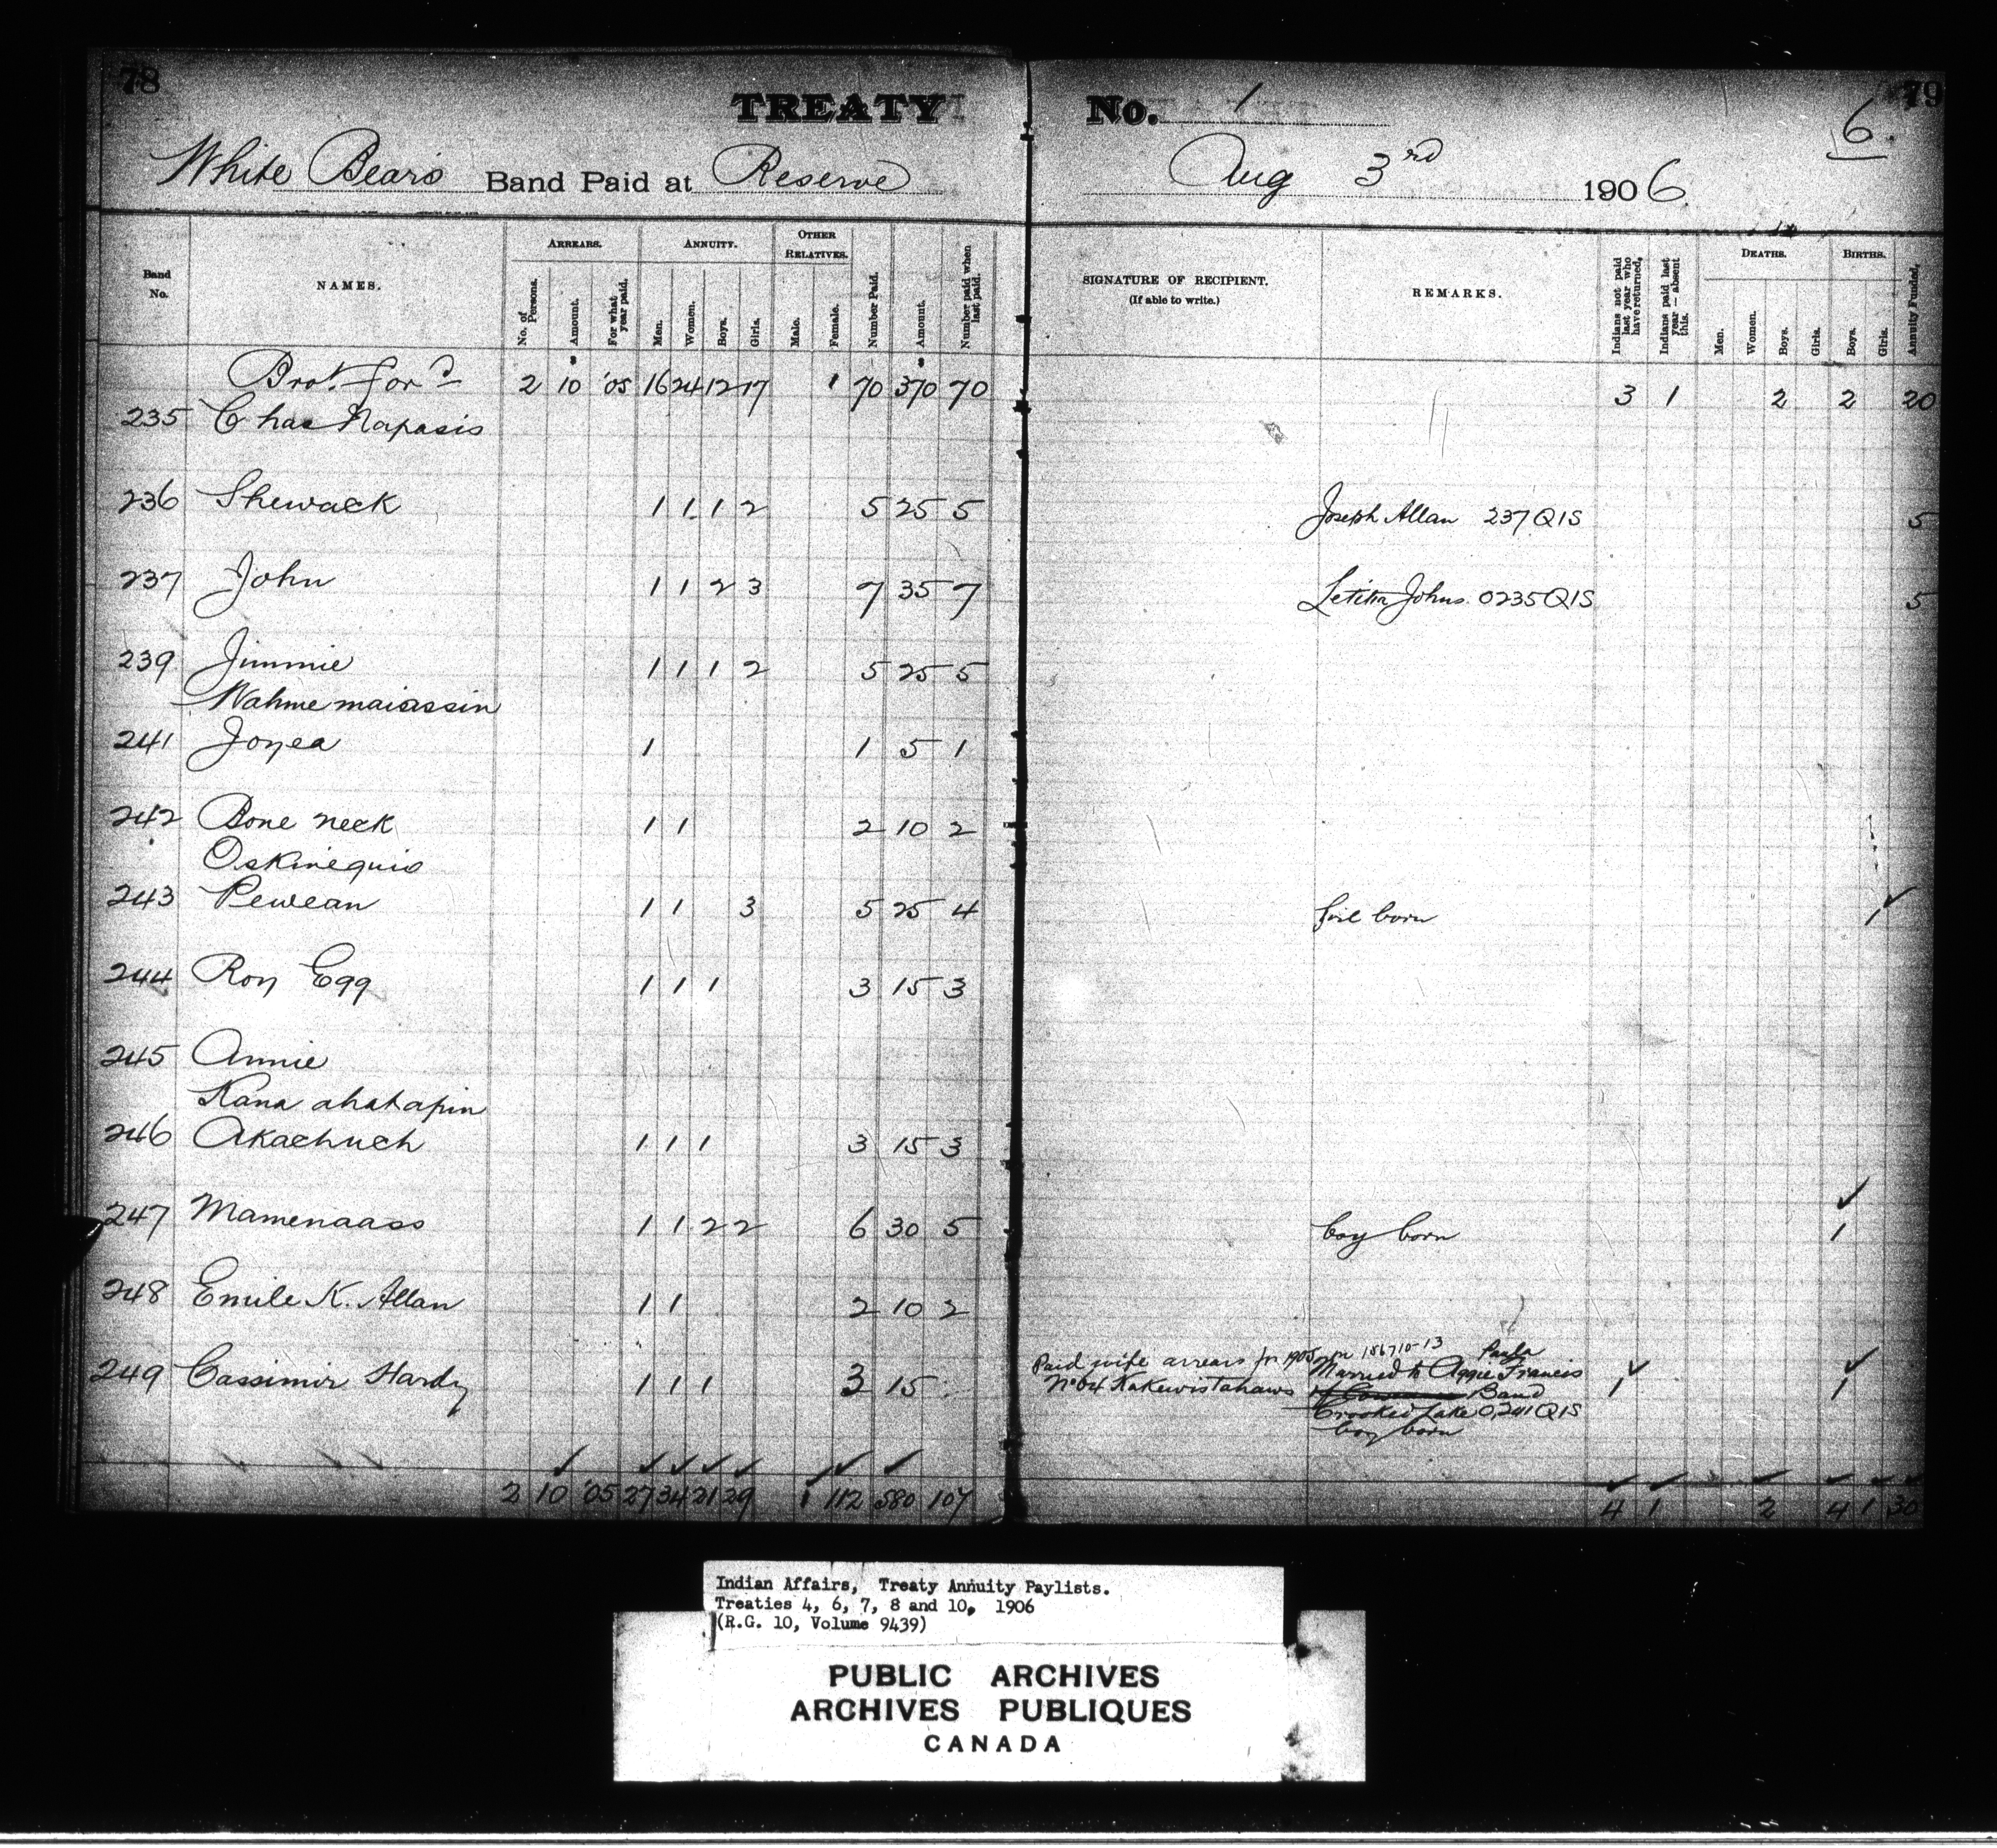 78
TREATY No. 1
79
6.
White Bears Band Paid at Reserve Aug 3rd 1906.
Band No.
NAMES.
ARREARS.
No. of Persons.
Amount.
For what year paid.
ANNUITY.
Men.
Women.
Boys.
Girls.
OTHER RELATIVES.
Male.
Female.
Number Paid.
Amount.
Number paid when last paid.
SIGNATURE OF RECIPIENT.
(If able to write.)
REMARKS.
Indians not paid last year who have returned.
Indians paid last year — absent this.
DEATHS.
Men.
Women.
Boys.
Girls.
BIRTHS.
Boys.
Girls.
Annuity Funded.
Brot. ford 2 $10 '05 16 24 12 17 1 70 $370 70 3 1 2 2 20
235 Chas Napasis
236 Shewack 1 1 1 2 5 25 5 Joseph Allan 237 QIS 5
237 John 1 1 2 3 7 35 7 Letitia Johns. 0235 QIS 5
239 Jimmie 1 1 1 2 5 25 5
Wahmemaiassin
241 Joyea 1 1 5 1
242 Bone neck 1 1 2 10 2
Oskinequio
243 Pewean 1 1 3 5 25 4 girl born 1
244 Roy Egg 1 1 1 3 15 3
245 Annie
Kana ahatapin
246 Akachuch 1 1 1 3 15 3
247 Mamenaass 1 1 2 2 6 30 5 boy born 1
248 Emile K. Allan 1 1 2 10 2
249 Cassimir Hardy 1 1 1 3 15 1 1
Paid wife arrears for 1905 on 186710-13
Married to Aggie Francis
No 64 Kakewistahaws Band
Crooked Lake 0,241 QIS
boy born
2 10 '05 27 34 21 29 1 112 580 107 4 1 2 4 1 30
Indian Affairs, Treaty Annuity Paylists.
Treaties 4, 6, 7, 8 and 10, 1906
(R.G. 10, Volume 9439)
PUBLIC ARCHIVES
ARCHIVES PUBLIQUES
CANADA